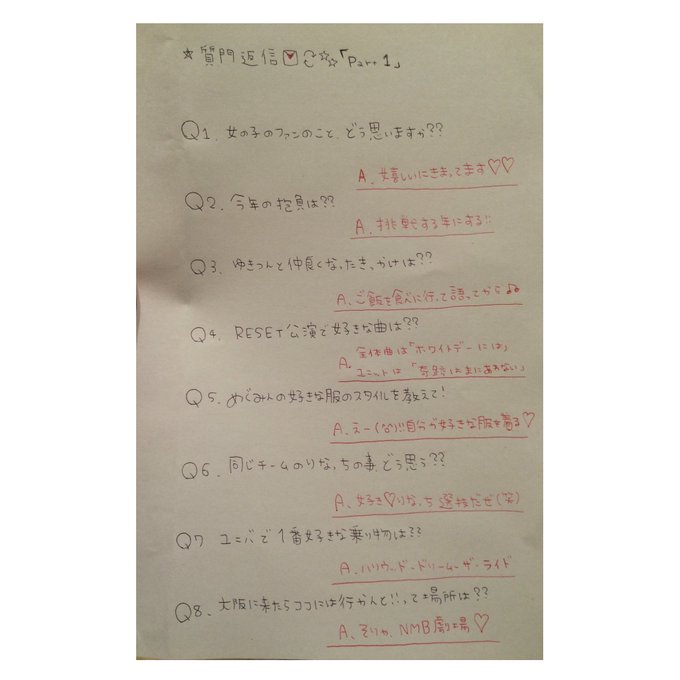 ☆質問返信💌「Part1」
Q1. 女の子のファンのこと、どう思いますか??
A. 嬉しいにきまってます♡♡
Q2. 今年の抱負は??
A. 挑戦する年にする!!
Q3. ゆきつんと仲良くなったきっかけは??
A. ご飯を食べに行って語ってから♪
Q4. RESET公演で好きな曲は??
A. 全体曲は「ホワイトデーには」
ユニットは「奇跡は間に合わない」
Q5. めぐみんの好きな服のスタイルを教えて!
A. えー(な)!!自分が好きな服を着る♡
Q6. 同じチームのりなっちの事、どう思う??
A. 好き♡りなっち選抜だぜ(笑)
Q7 ユニバで1番好きな乗り物は??
A. ハリウッド・ドリーム・ザ・ライド
Q8. 大阪に来たらココには行かんと!!って場所は??
A. そりゃ、NMB劇場♡